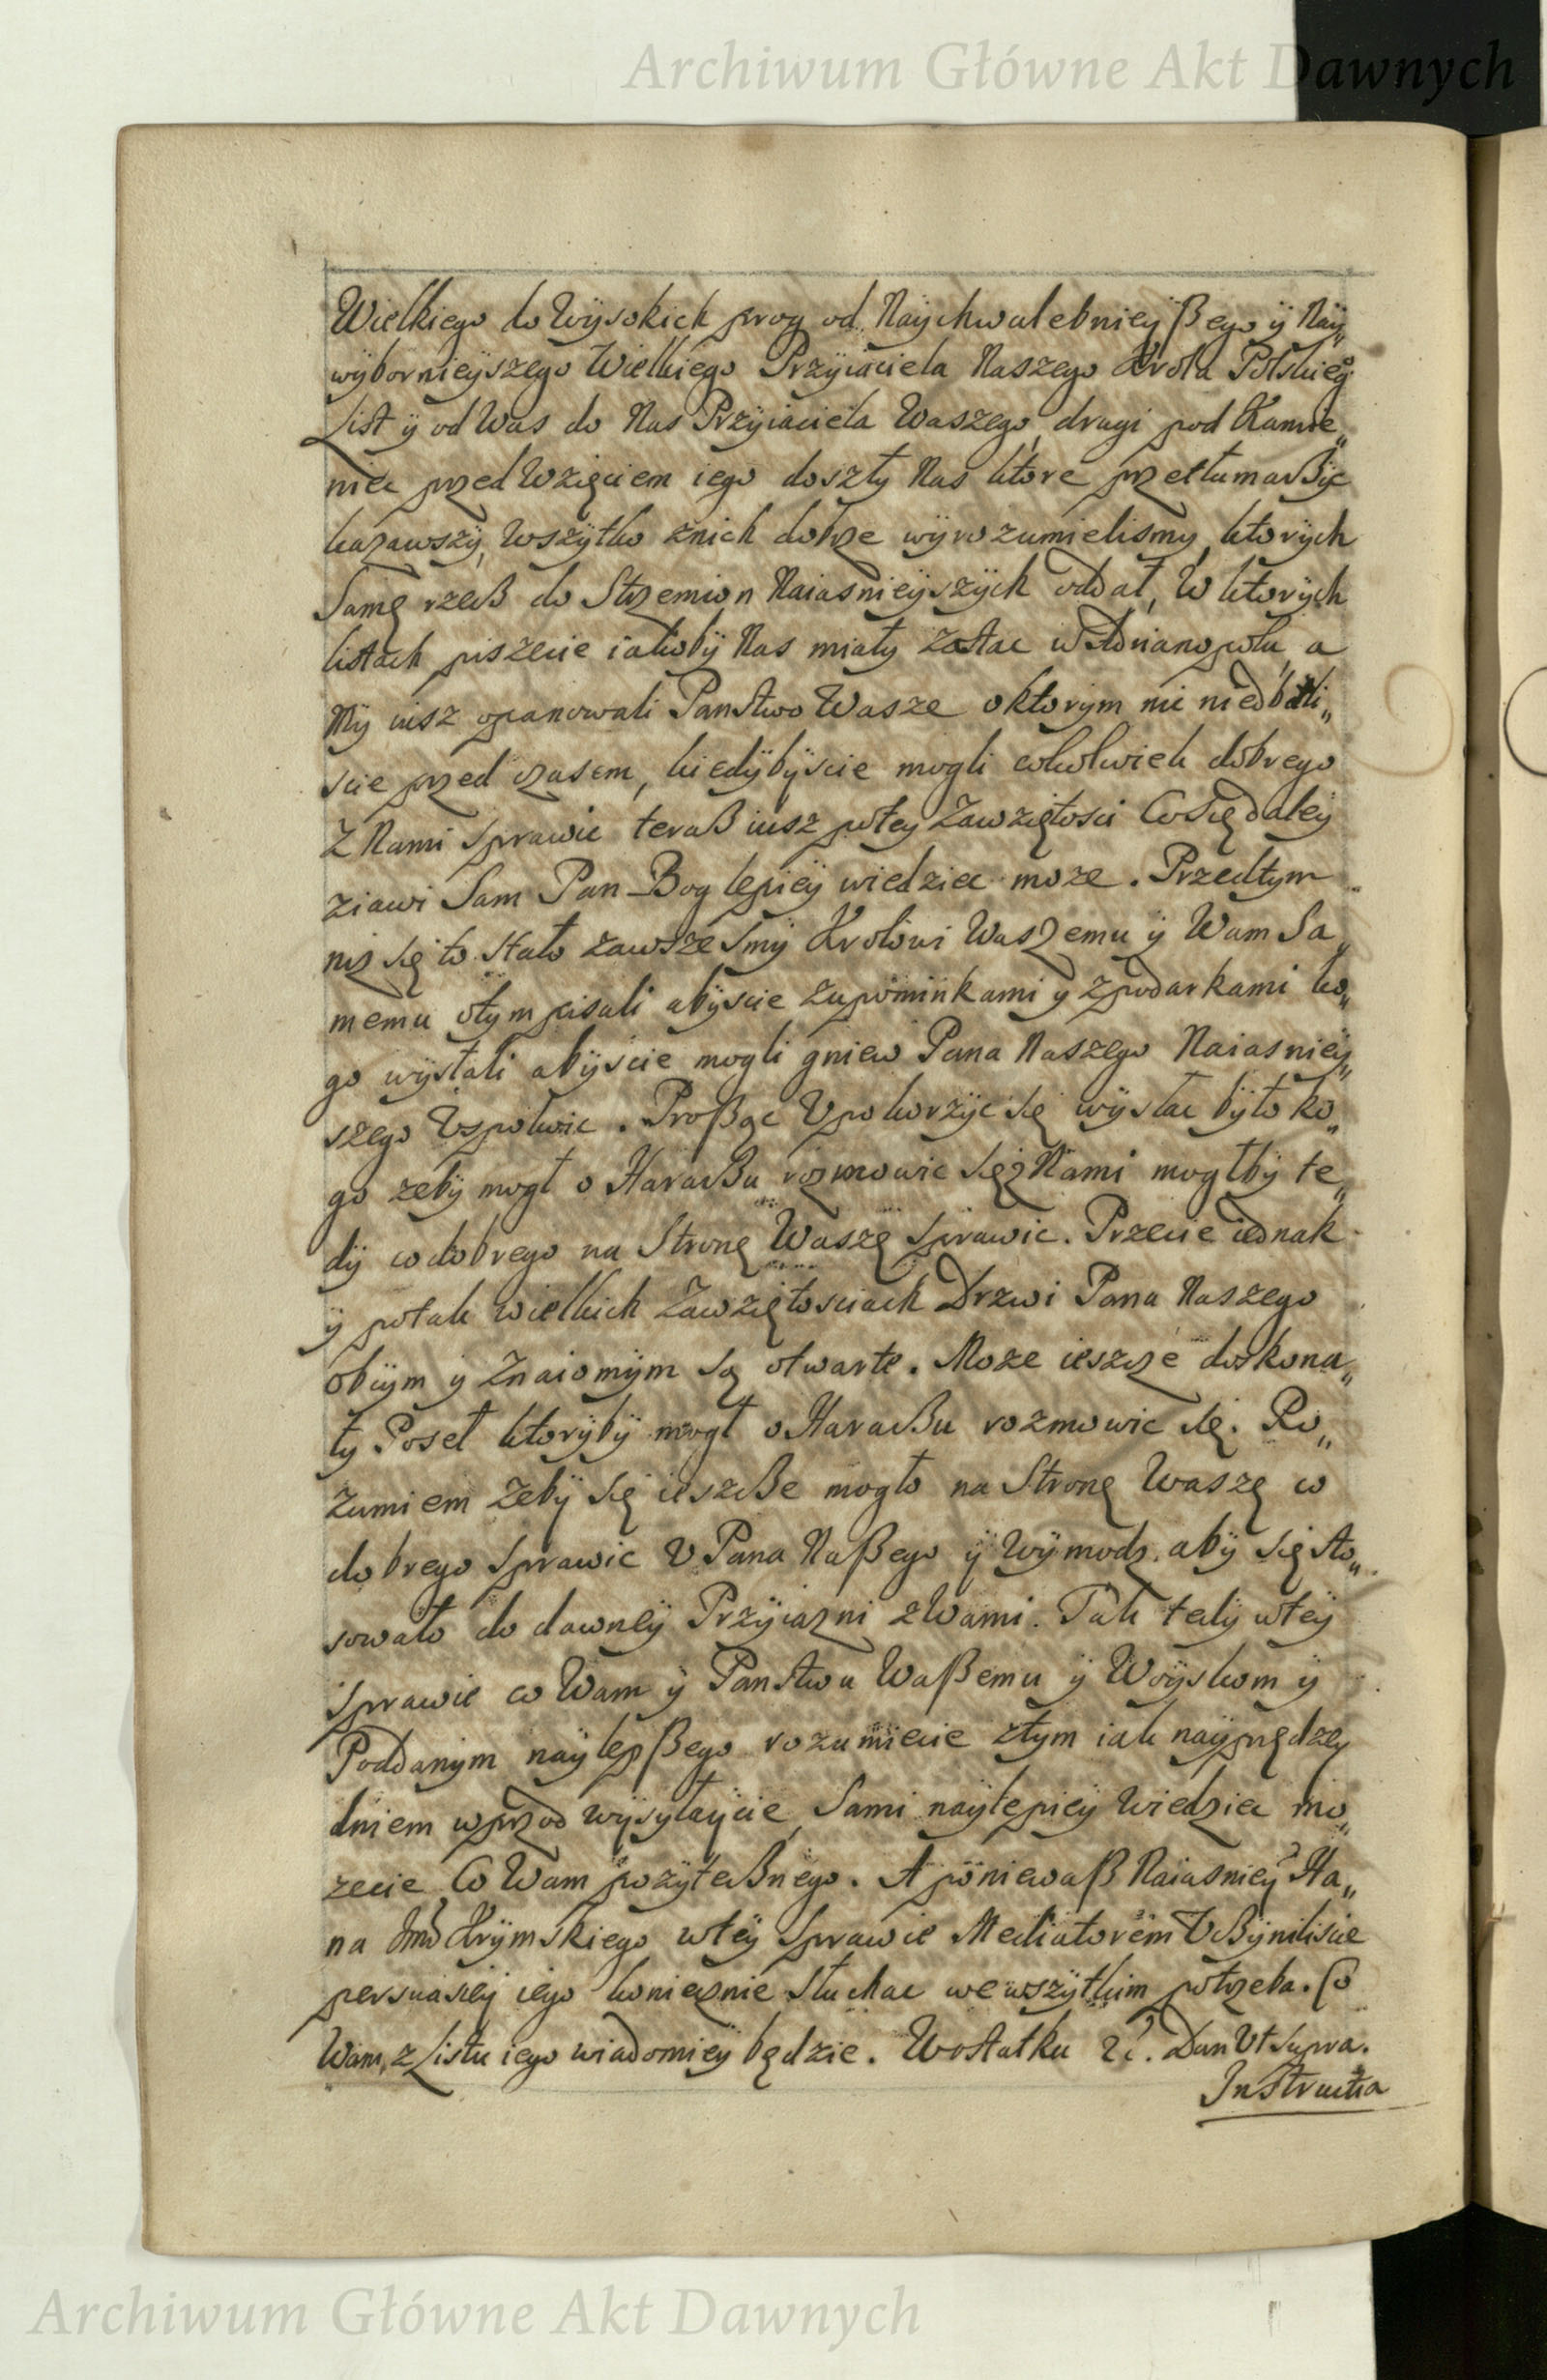 Archiwum Główne Akt Dawnych
Wielkiego do Wÿsokich prog od Naÿchwalebnieÿßego ÿ Naÿ„
wÿbornieÿszego Wielkiego Przÿiaciela Naszego Krola Polskieg°
List ÿ od Was do Nas Przÿiaciela Waszego, drugi pod Kamie„
niec przed Wzięciem iego doszły Nas ktore przetłumaßÿc
kazawszÿ, Wszÿtko znich dobrze wÿrozumielismy, ktorÿch
Samę rzecß do Strzemion Naiasnieÿszÿch oddał, W ktorÿch
listach piszecie iakobÿ Nas miały zostac w Adrianopolu, a
Mÿ iusz opanowali Panstwo Wasze oktorÿm nic niedbali„
scie przed czasem, kiedÿbÿscie mogli cokolwiek dobrego
Z Nami sprawic teraß iusz potey Zawziętosci Cosię daleÿ
ziawi Sam Pan Bog lepieÿ wiedziec moze. Przedtym
niz się to stało zawsze smÿ Krolowi Waszemu ÿ Wam Sa„
memu otym pisali abÿscie zupominkami y zpodarkami ko„
go wÿsłali abÿscie mogli gniew Pana Naszego Naiasnieÿ„
szego Uspokoic. Proßąc Upokorzÿc się wÿsłac bÿło ko„
go zebÿ mogł o Haracßu rozmowic się z Nami mogłbÿ te„
dÿ co dobrego na Stronę Waszę sprawic. Przecie iednak
ÿ potak wielkich Zawziętosciach Drzwi Pana Naszego
obcÿm ÿ Znaiomÿm są otwarte. Moze ieszcze doskona„
łÿ Poseł ktorÿbÿ mogł o Haracßu rozmowic się. Ro„
zumiem zebÿ się ieszcße mogło na Stronę Waszę co
dobrego sprawic U Pana Naßego ÿ Wÿmodz abÿ się sto„
sowało do dawneÿ Przÿiazni zWami. Tak tedÿ wteÿ
sprawie co Wam ÿ Panstwu Waßemu ÿ Woÿskom ÿ
Poddanÿm naÿlepßego rozumiecie ztym iak naÿprędzeÿ
dniem wprzod wÿsyłaÿcie, Sami naÿlepieÿ Wiedziec mo„
zecie Co Wam pozÿtecßnego. A poniewaß Naiasnieÿ° Ha„
na Jmci Krÿmskiego wteÿ sprawie Mediatorem Ucßÿnilisie
persuasieÿ iego koniecznie słuchac wewszÿtkim potrzeba. Co
Wam, z Listu iego wiadomieÿ będzie. Wostatku &c. Dan Ut supra.
Instructia
Archiwum Główne Akt Dawnych